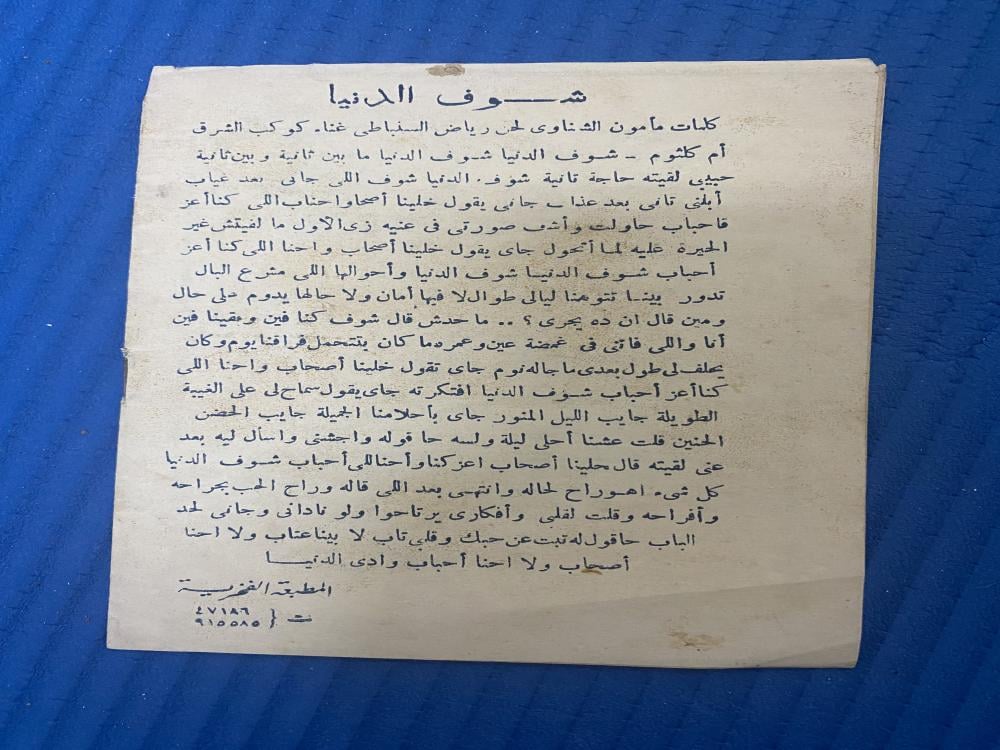 شـــوف الدنيا
كلمات مأمون الشناوى لحن رياض السنباطى غناء كوكب الشرق
أم كلثوم ـ شـوف الدنيا شـوف الدنيا ما بين ثانية وبين ثانية
حبيبي لقيته حاجة تانية شوف الدنيا شوف اللى جانى بعد غياب
أبلنى تانى بعد عذاب جانى يقول خلينا أصحاب واحنا اللى كنا أعز
أحباب حاولت وأشف صورتى فى عنيه زى الأول ما لقيتش غير
الحيرة عليه لما أتحول جاى يقول خلينا أصحاب واحنا اللى كنا أعز
أحباب شـوف الدنيـا شوف الدنيا وأحوالها اللى مشرع البال
تدور بينـا تتوهنا ليالى طوال لا فيها أمان ولا حالها يدوم على حال
ومين قال ان ده يجرى ؟ .. ماحدش قال شوف كنا فين وبقينا فين
أنا واللى فاتنى فى غمضة عين وعمره ما كان يتحمل فراقنا يوم وكان
يحلف لى طول بعدى ما جاله نوم جاى تقول خلينا أصحاب واحنا اللى
كنا أعز أحباب شـوف الدنيا افتكرته جاى يقول سماح لى على الغيبة
الطويلة جايب الليل المنور جاى بأحلامنا الجميلة جايب الحضن
الحنين قلت عشنا أحلى ليلة ولسه حا قوله واحشنى واسأل ليه بعد
عنى لقيته قال خلينا أصحاب اعز كنا وأحنا اللى أحباب شـوف الدنيا
كل شىء اهو راح لحاله وانتهى بعد اللى قاله وراح الحب بجراحه
وأفراحه وقلت لقلبى وأفكارى يرتاحوا ولو نادانى وجانى لحد
الباب حا قول له تبت عن حبك وقلبى تاب لا بينا عتاب ولا احنا
أصحاب ولا احنا أحباب وادى الدنيـــا
المطبعة الفخرية
ت { ٤٧١٨٦
٩١٥٥٨٥